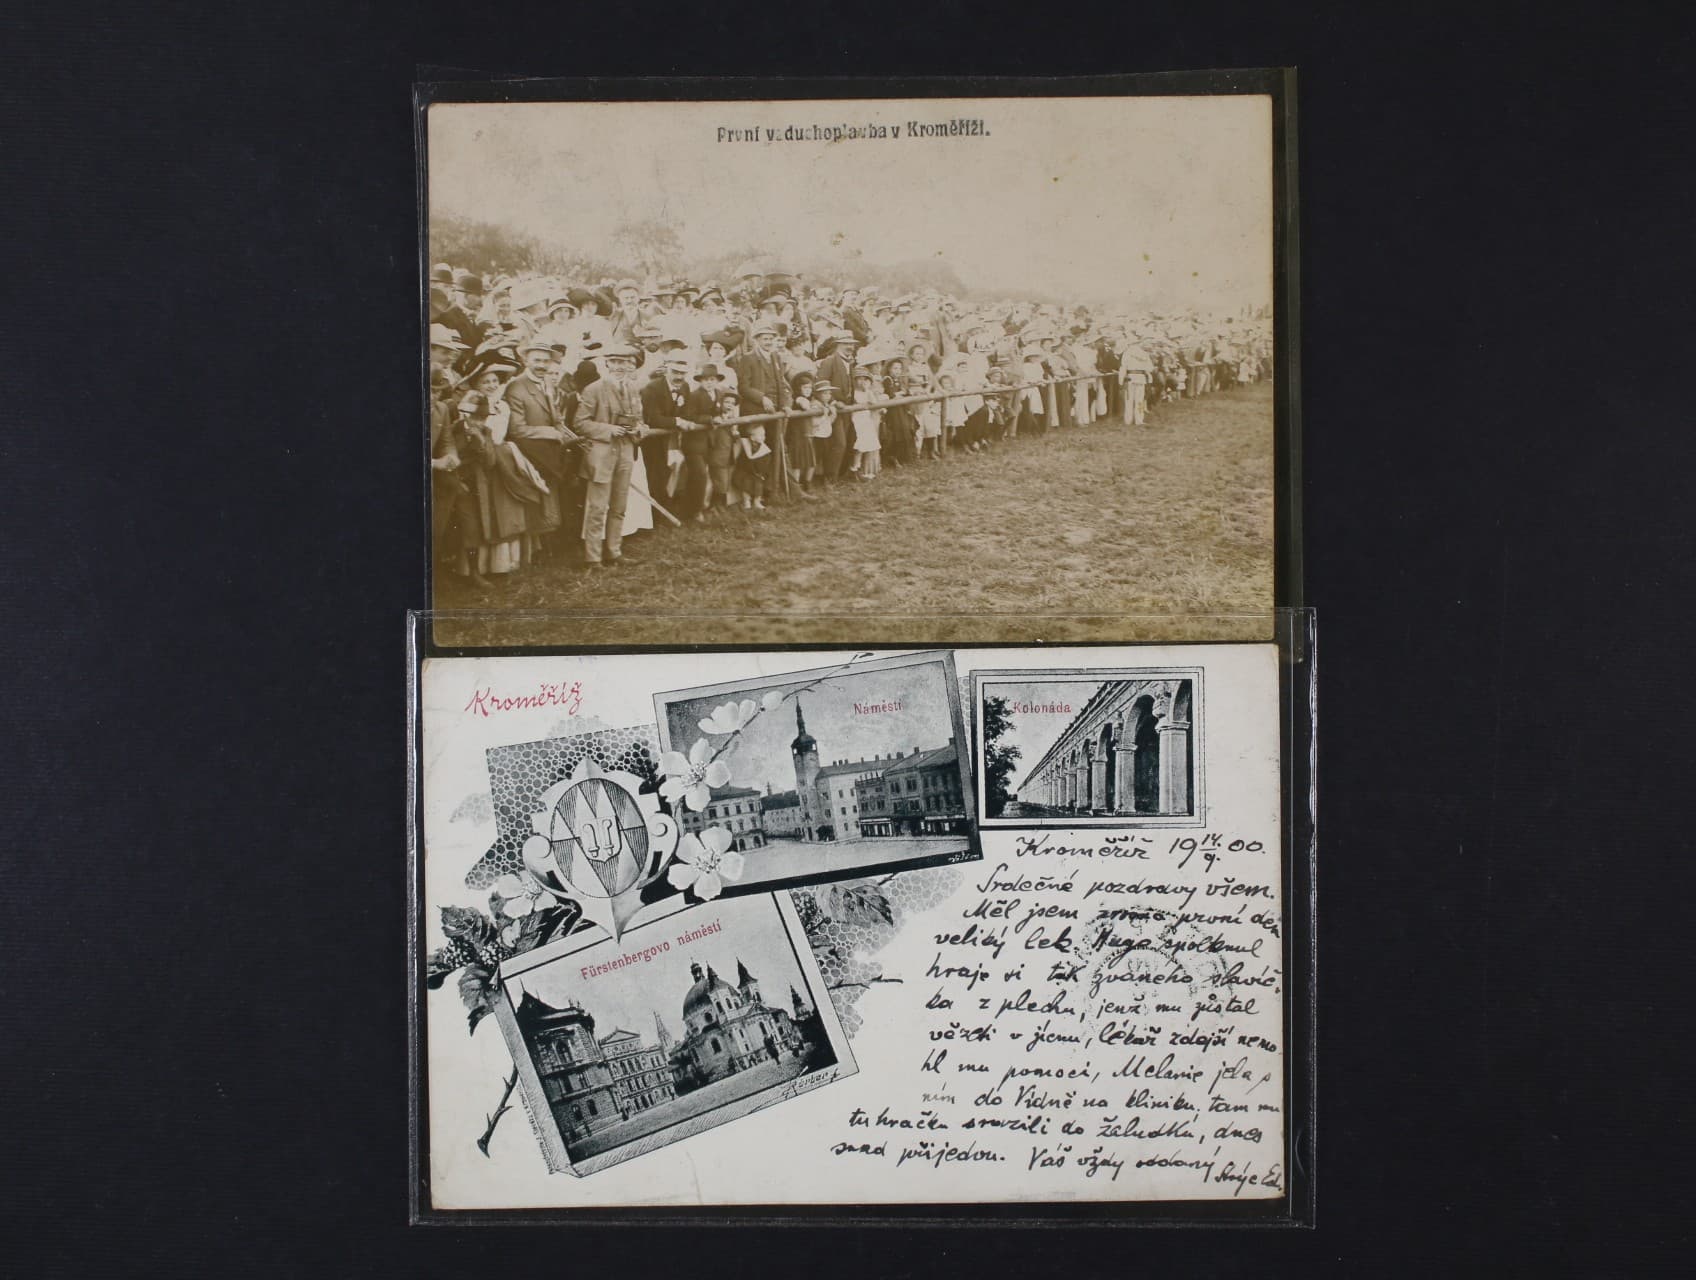 První vzduchoplavba v Kroměříži.
Kroměříž
Náměstí
Kolonáda
Fürstenbergovo náměstí
Kroměříž 19 14./9. 00.
Srdečné pozdravy všem.
Měl jsem první den
veliký lek. Hugo spolknul
hraje si tak zvaného slavíč-
ka z plechu, jenž mu zůstal
vězeti v jícnu, lékař zdejší nemo
hl mu pomoci, Melanie jela s
ním do Vídně na kliniku, tam mu
tu hračku srazili do žaludku, dnes
snad přijedou. Váš vždy oddaný
Strýc Ed.